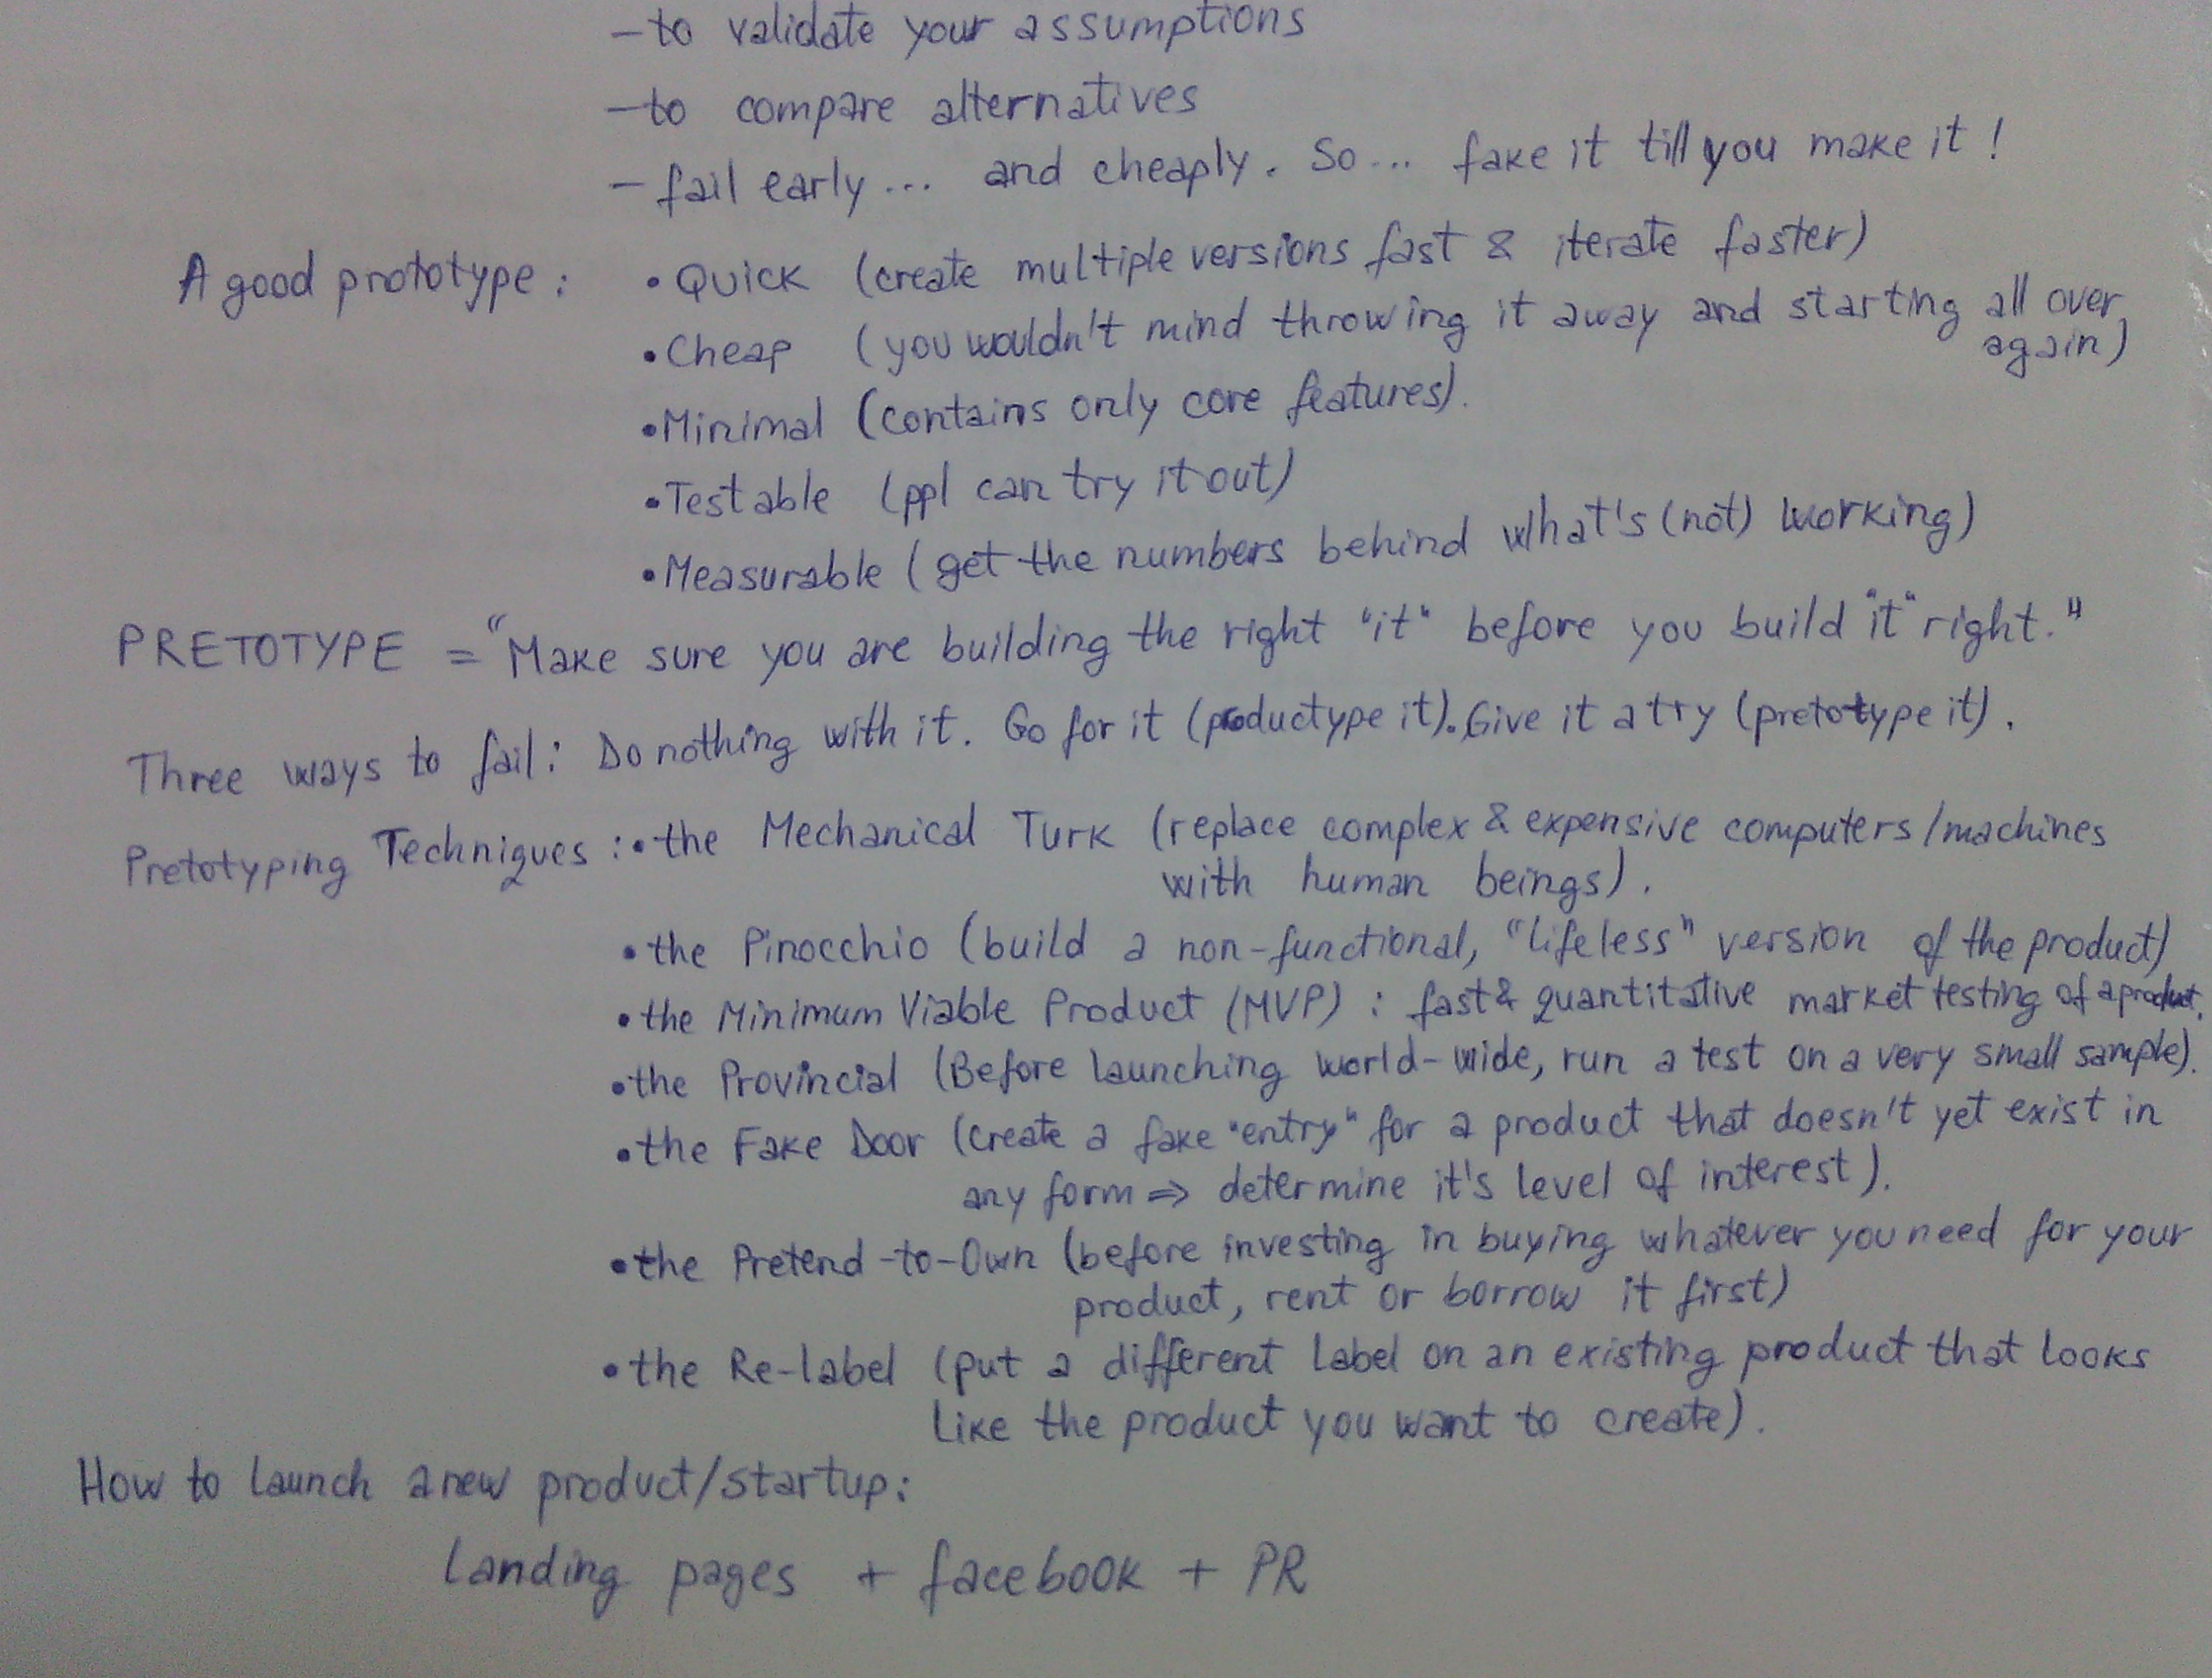 -to validate your assumptions
-to compare alternatives
- fail early... and cheaply. So... fake it till you make it!
A good prototype: • Quick (create multiple versions fast & iterate faster)
• Cheap (you wouldn't mind throwing it away and starting all over
again)
• Minimal (contains only core features).
• Testable (ppl can try it out)
• Measurable (get the numbers behind what's (not) working)
PRETOTYPE = "Make sure you are building the right "it" before you build "it" right."
Three ways to fail: Do nothing with it. Go for it (productype it). Give it a try (pretotype it).
Pretotyping Techniques: • the Mechanical Turk (replace complex & expensive computers/machines
with human beings).
• the Pinocchio (build a non-functional, "lifeless" version of the product)
• the Minimum Viable Product (MVP): fast & quantitative market testing of a product.
• the Provincial (Before launching world-wide, run a test on a very small sample).
• the Fake Door (create a fake "entry" for a product that doesn't yet exist in
any form => determine it's level of interest).
• the Pretend-to-Own (before investing in buying whatever you need for your
product, rent or borrow it first)
• the Re-label (put a different label on an existing product that looks
like the product you want to create).
How to launch a new product/startup:
landing pages + facebook + PR